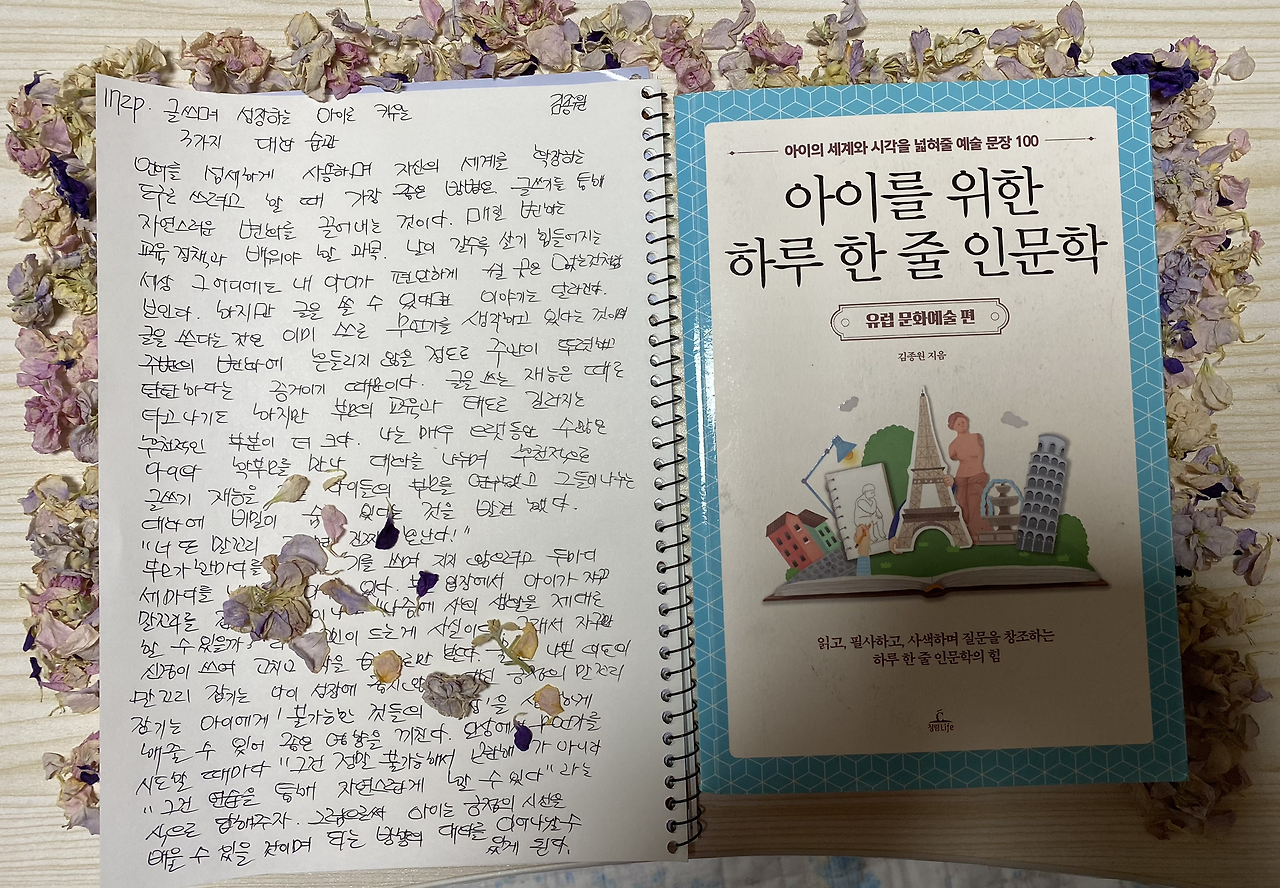 117p. 글쓰며 성장하는 아이로 키우는 김종원
3가지 대화 습관
언어를 섬세하게 사용하며 자신의 세계를 확장하는
도구로 쓰려고 할 때 가장 좋은 방법은 글쓰기를 통해
자연스러운 변화를 끌어내는 것이다. 매일 변하는
교육 정책과 배워야 할 과목. 날이 갈수록 살기 힘들어지는
세상 그 어디에도 내 아이가 편안하게 쉴 곳은 없는 것처럼
보인다. 하지만 글을 쓸 수 있다면 이야기는 달라진다.
글을 쓴다는 것은 이미 스스로 무언가를 생각하고 있다는 것이며
주변의 변화에 흔들리지 않을 정도로 주관이 뚜렷하고
탄탄하다는 증거이기 때문이다. 글을 쓰는 재능은 때로
타고나기도 하지만 부모의 교육과 태도로 길러지는
후천적인 부분이 더 크다. 나는 매우 오랫동안 수많은
아이와 학부모를 만나 대화를 나누며 후천적으로
글쓰기 재능을 아이들의 부모를 연구했고 그들이 나누는
대화에 비밀이 있다는 것을 발견했다.
"너 또 말꼬리 진짜 혼난다!"
부모가 한마디를 기를 쓰며 지지 않으려고 두마디
세마디를 있다. 입장에서 아이가 자꾸
말꼬리를 나중에 사회 생활을 제대로
할 수 있을까? 드는게 사실이다. 그래서 자꾸만
신경이 쓰여 고치고 싶은 받다. 나쁜 의도의
말꼬리 잡기는 아이 성장에 긍정의 말꼬리
잡기는 아이에게 '불가능한 것들의
해줄 수 있어 좋은 영향을 끼친다. 일상에서 무언가를
시도할 때마다 "그건 정말 불가능해서 가 아니라
"그건 연습을 통해 자연스럽게 할 수 있다" 라는
식으로 말해주자. 그럼으로써 아이는 긍정의 시선을
배울 수 있을 것이며 다른 방향의 대화를 이어나갈 수
있게 된다.
아이의 세계와 시각을 넓혀줄 예술 문장 100
아이를 위한
하루 한 줄 인문학
유럽 문화예술 편
김종원 지음
읽고, 필사하고, 사색하며 질문을 창조하는
하루 한 줄 인문학의 힘
청림Life